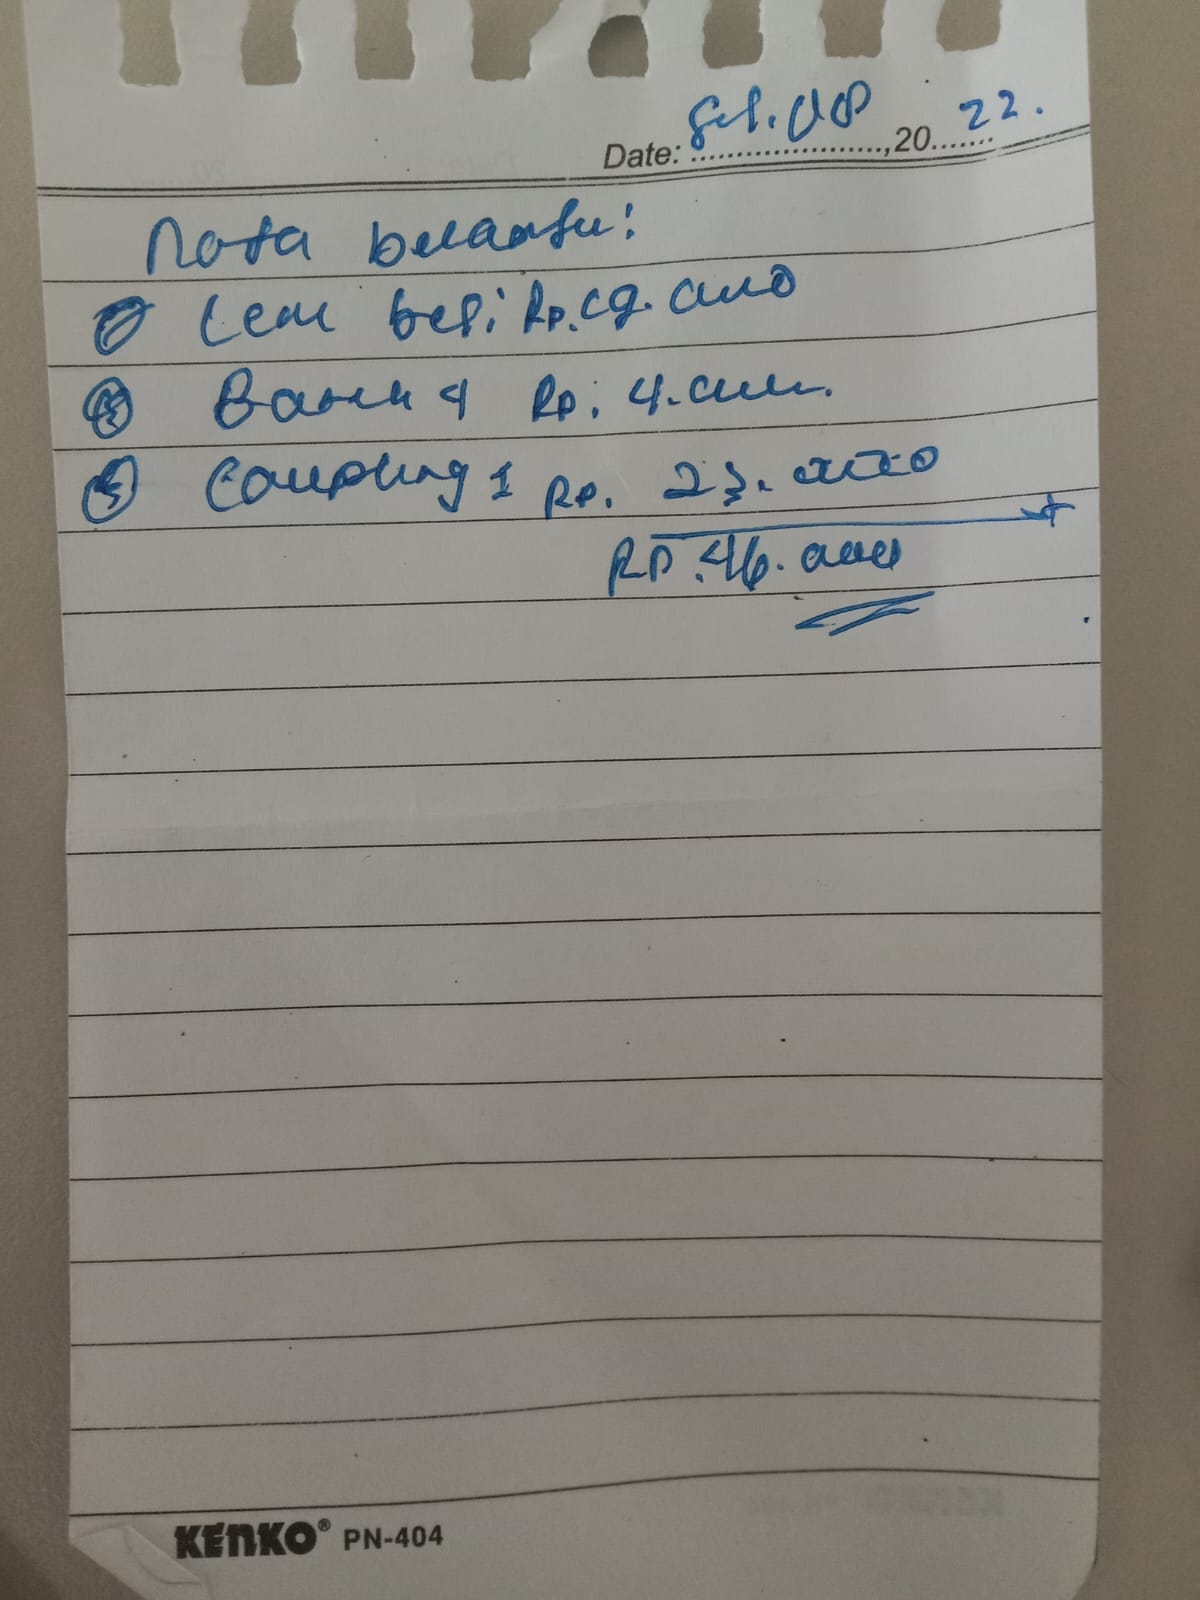 Date: Sel. 08, 2022.
Nota belanja:
① Lem besi Rp. 19.000
② Baut 4 Rp. 4.000.
③ Coupling 1 Rp. 23.000
+
RP. 46.000
KENKO® PN-404